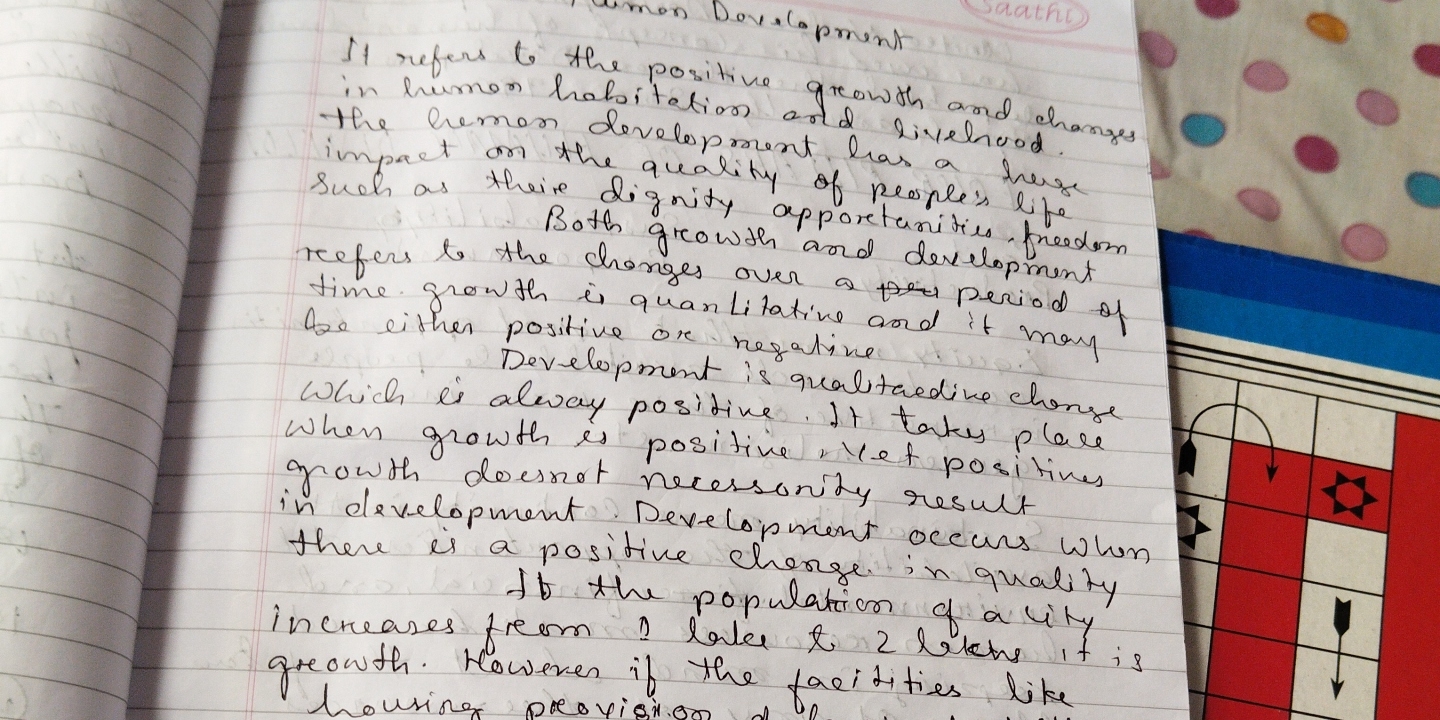 Human Development
Saathi
It refers to the positive growth and changes
in human habitation and livelhood.
the human development has a huge
impact on the quality of people's life
such as theire dignity apporetunities, freedom
Both growth and development
reefers to the changes over a period of
time. growth is quantitative and it may
be either positive or negative
Development is qualitaedive change
which is alway positive. It takes place
when growth is positive. Yet positives
growth doesnot necessarity result
in development. Development occurs when
there is a positive change in quality
If the population of a city
increases from 1 lake to 2 lakhs it is
growth. However if the facidities like
housing provision